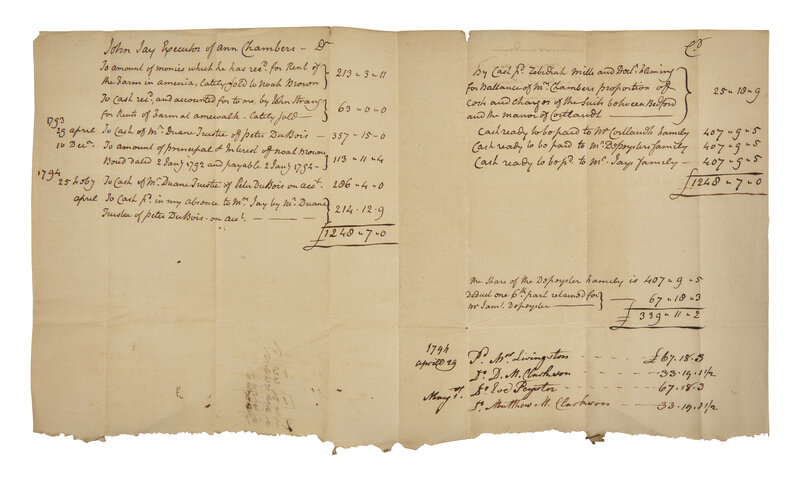 John Jay Executor of ann Chambers — Dr
To amount of monies which he has recd. for Rent of
the Farm in america, lately sold to Noah Brown
213 - 3 - 11
To Cash recd. and accounted for to me, by John Strang
for Rents of Farm at amewalk - lately sold —
63 - 0 - 0
1793
29 april To Cash of Mr. Duane Trustee of peter DuBois — 357 - 15 - 0
10 Decr. To amount of principal & Interest of Noah Browns
Bond dated 2 Jany 1792 and payable 2 Jany 1794 -
113 - 11 - 4
1794
25 To Cash of Mr. Duane Trustee of Peter DuBois on acct. 286 - 4 - 0
april To Cash pd. in my absence to Mrs. Jay by Mr. Duane
Trustee of peter DuBois - on acct. — — —
214 - 12 - 9
£1248 - 7 - 0
Cr.
By Cash pd. Zebediah Mills and Doctr. Fleming
for Ballance of Mrs. Chambers proportion of
Costs and Charges of the Suits between Bedford
and the manor of Cortlandt —
25 - 18 - 9
Cash ready to be paid to Mr Cortlandts family 407 - 9 - 5
Cash ready to be paid to Mr. Depeysters family 407 - 9 - 5
Cash ready to be pd. to Mr. Jays Family — 407 - 9 - 5
£1248 - 7 - 0
the Share of the Depeyster family is 407 - 9 - 5
deduct one 6th. part retained for
Mr Jams. Depeyster —
67 - 18 - 3
£339 - 11 - 2
1794
aprill 29 Pd. Mrs. Livingston - - - - £67. 18. 3
Do. D. M. Clarkson - - - - 33. 19. 1 1/2
May 7. Do. Eve Peyster - - - 67. 18. 3
Do. Matthew M. Clarkson - - - 33. 19. 1 1/2